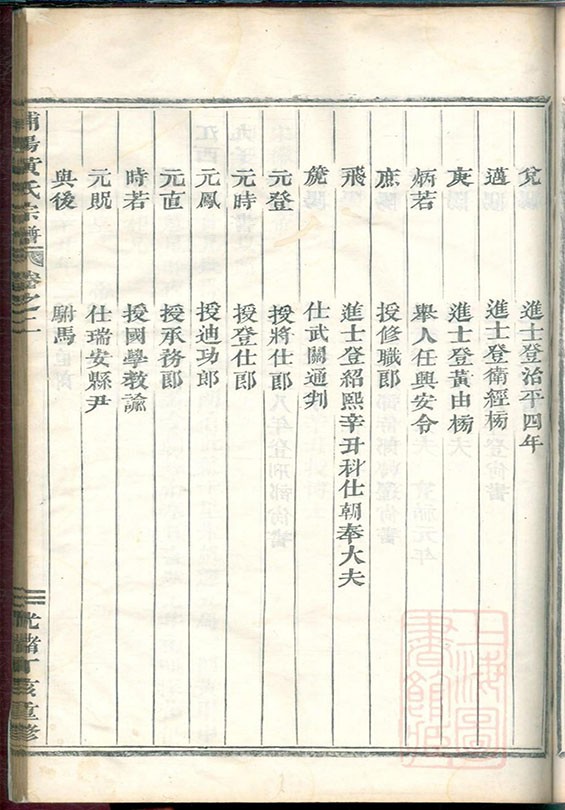 兌 進士登治平四年
邁 進士登衛經榜
庚 進士登黃由榜
炳若 舉人任興安令
庶 授修職郎
飛 進士登紹熙辛丑科仕朝奉大夫
仕武關通判
元登 授將仕郎
元時 授登仕郎
元鳳 授迪功郎
元直 授承務郎
時若 授國學教諭
元既 仕瑞安縣尹
與後 駙馬
浦陽黃氏宗譜 卷之二
光緒丁亥重修
上海圖書館藏